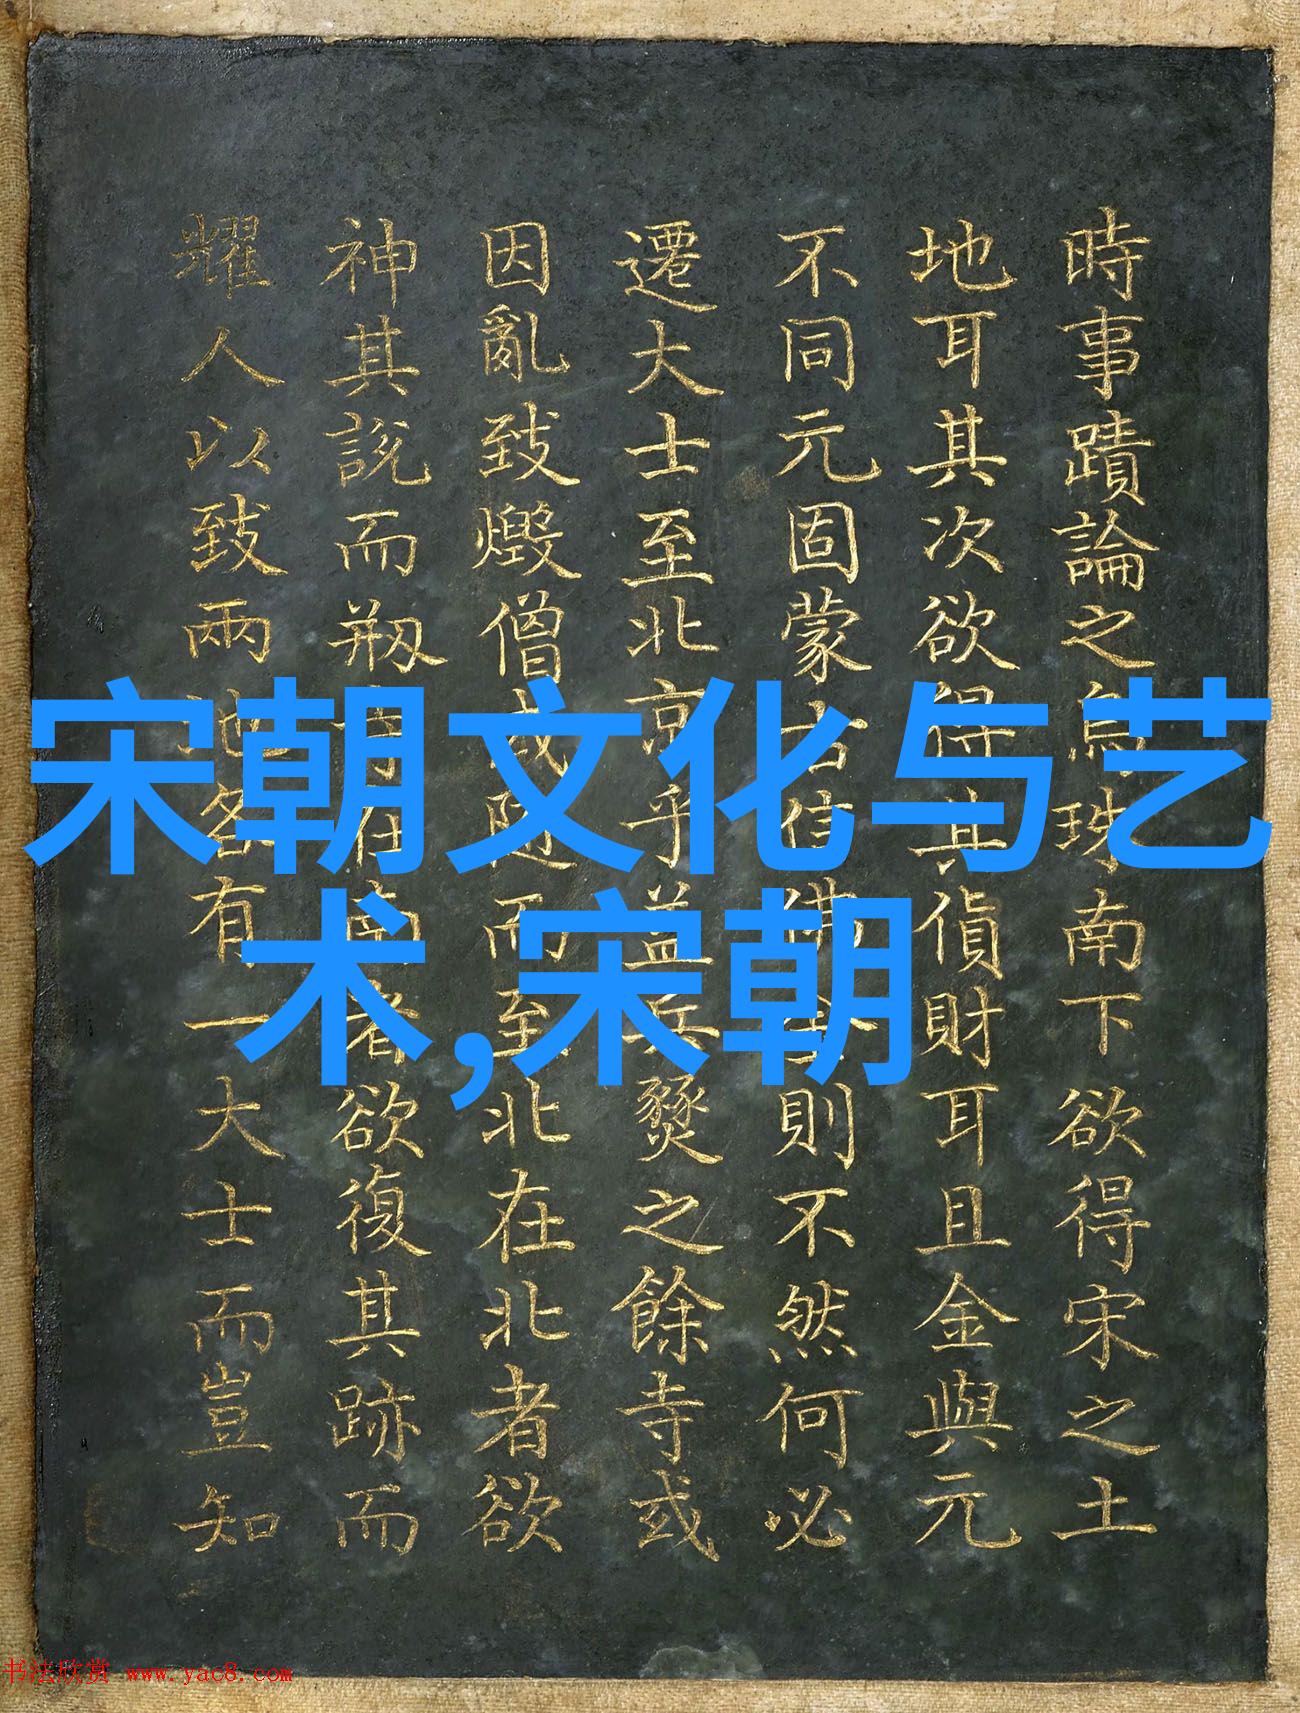 時事蹟論之烏珠南下欲得宋之土
地耳其次欲得其貨財耳且金與元
不同元固蒙古信佛教則不然何必
遷大士至北京乎蓋兵燹之餘寺或
因亂致燬僧或隨而至北在北者欲
神其說而剏在南者欲復其跡而
耀人以致兩地各有一大士而豈知
宋朝文化与艺
术,宋朝
书法欣赏 www.yac8.com